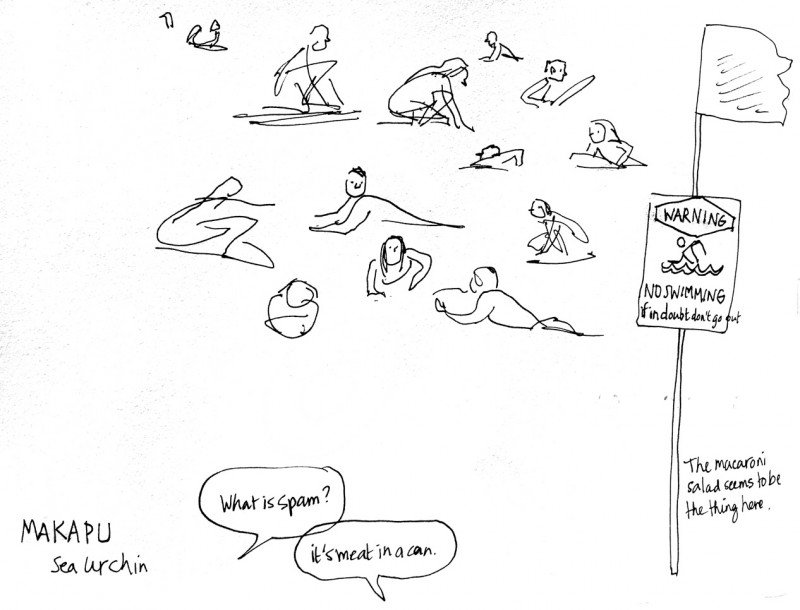 WARNING
NO SWIMMING
if in doubt don't go out
The macaroni
salad seems to be
the thing here.
What is Spam?
it's meat in a can.
MAKAPU
Sea Urchin